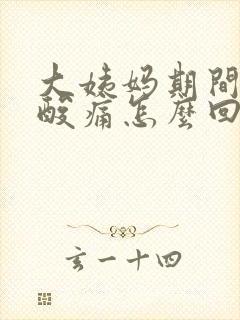 大姨妈期間
酸痛怎麼回
玄一十四